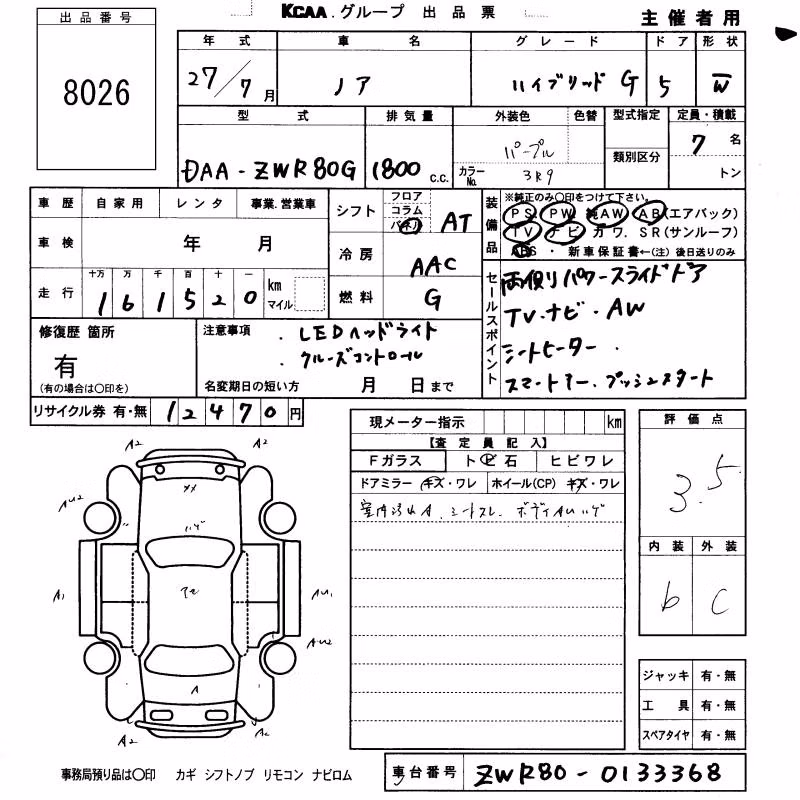 KCAA.グループ 出品票
主催者用
出品番号
8026
年式 車名 グレード ドア 形状
27/7月 ノア ハイブリッド G 5 W
型式 排気量 外装色 色替 型式指定 定員・積載
DAA-ZWR80G 1800 c.c. パープル 7名
カラーNo. 3R9 類別区分 トン
車歴 自家用 レンタ 事業.営業車
シフト フロア コラム パネル AT
装備品 ※純正のみ〇印をつけて下さい。
PS. PW 純AW. AB(エアバック)
TV ナビ カワ. SR(サンルーフ)
ABS ・ 新車保証書←(注)後日送りのみ
車検 年 月
冷房 AAC
走行 十万 万 千 百 十 一
161520 km マイル
燃料 G
セールスポイント 両側パワースライドドア
TV.ナビ.AW
シートヒーター.
スマートキー.プッシュスタート
修復歴 箇所
有
(有の場合は〇印を)
注意事項 .LEDヘッドライト
.クルーズコントロール
名変期日の短い方 月 日まで
リサイクル券 有・無 12470円
現メーター指示 km
【査定員記入】
Fガラス トビ石 ヒビワレ
ドアミラー キズ・ワレ ホイール(CP) キズ・ワレ
室内汚れA. シートスレ. ボディAUハゲ
評価点
3.5
内装 外装
b C
A2 A2
メメ
AU2
ハゲ
A1 AU1
AU2
A
A2 A2
ジャッキ 有・無
工具 有・無
スペアタイヤ 有・無
事務局預り品は〇印 カギ シフトノブ リモコン ナビロム
車台番号 ZWR80-0133368